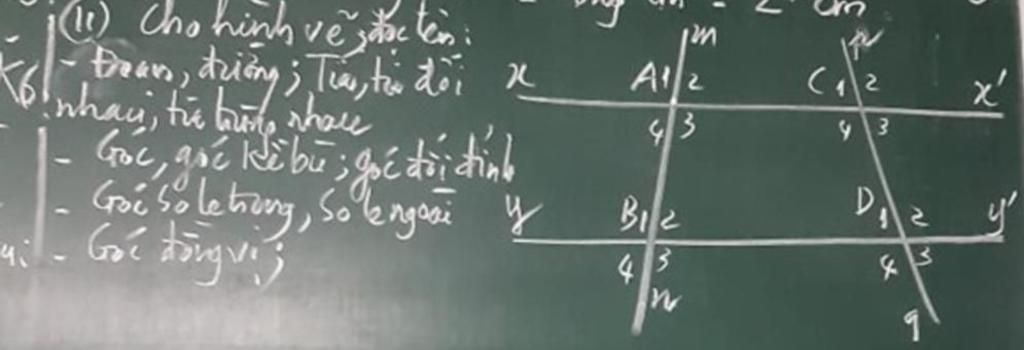 (11) Cho hình vẽ, đọc tên:
- Đoạn, đường; Tia, tia đối
nhau; tia trùng nhau
- Góc, góc kề bù; góc đối đỉnh
- Góc so le trong, so le ngoài
- Góc đồng vị;
m
x A 1 2 C 1 2 x'
4 3 4 3
y B 1 2 D 1 2 y'
4 3 4 3
n
q